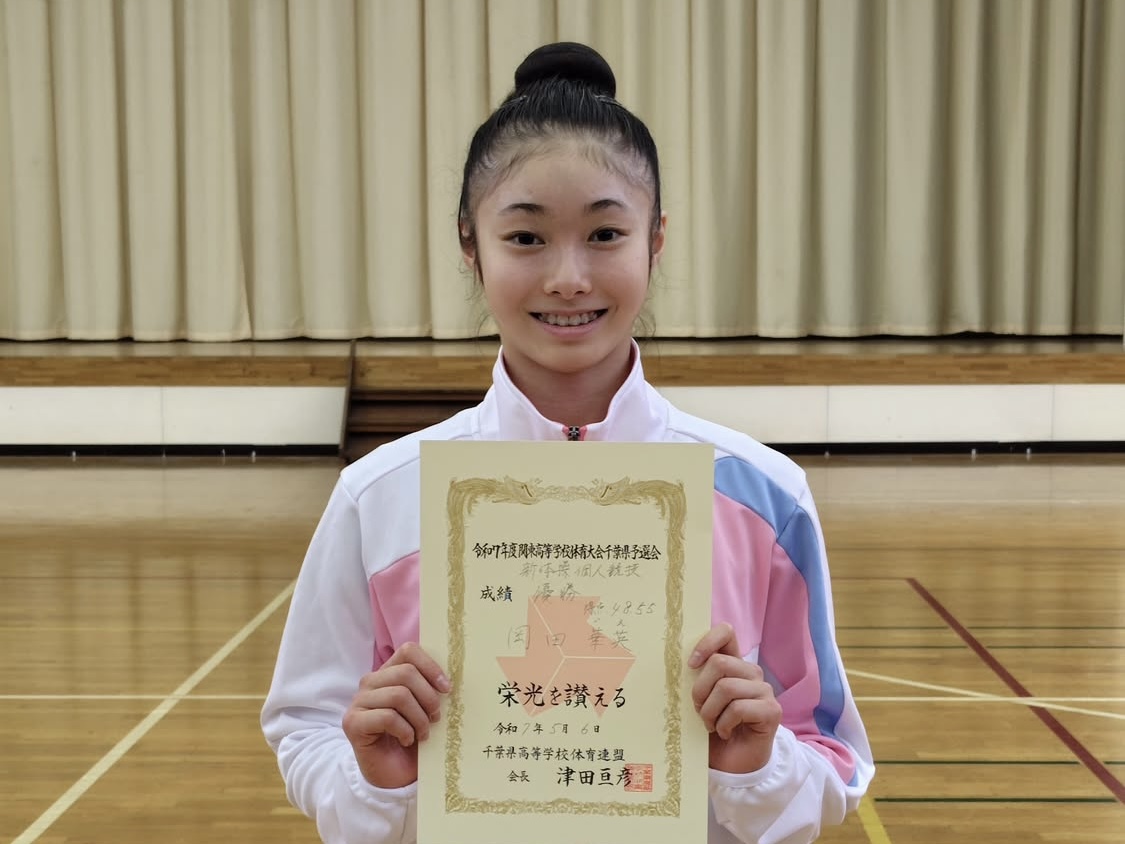 令和7年度関東高等学校体育大会千葉県予選会
新体操 個人競技
成績 優勝
得点 48.55
岡田 華英
栄光を讃える
令和7年5月6日
千葉県高等学校体育連盟
会長 津田亘彦